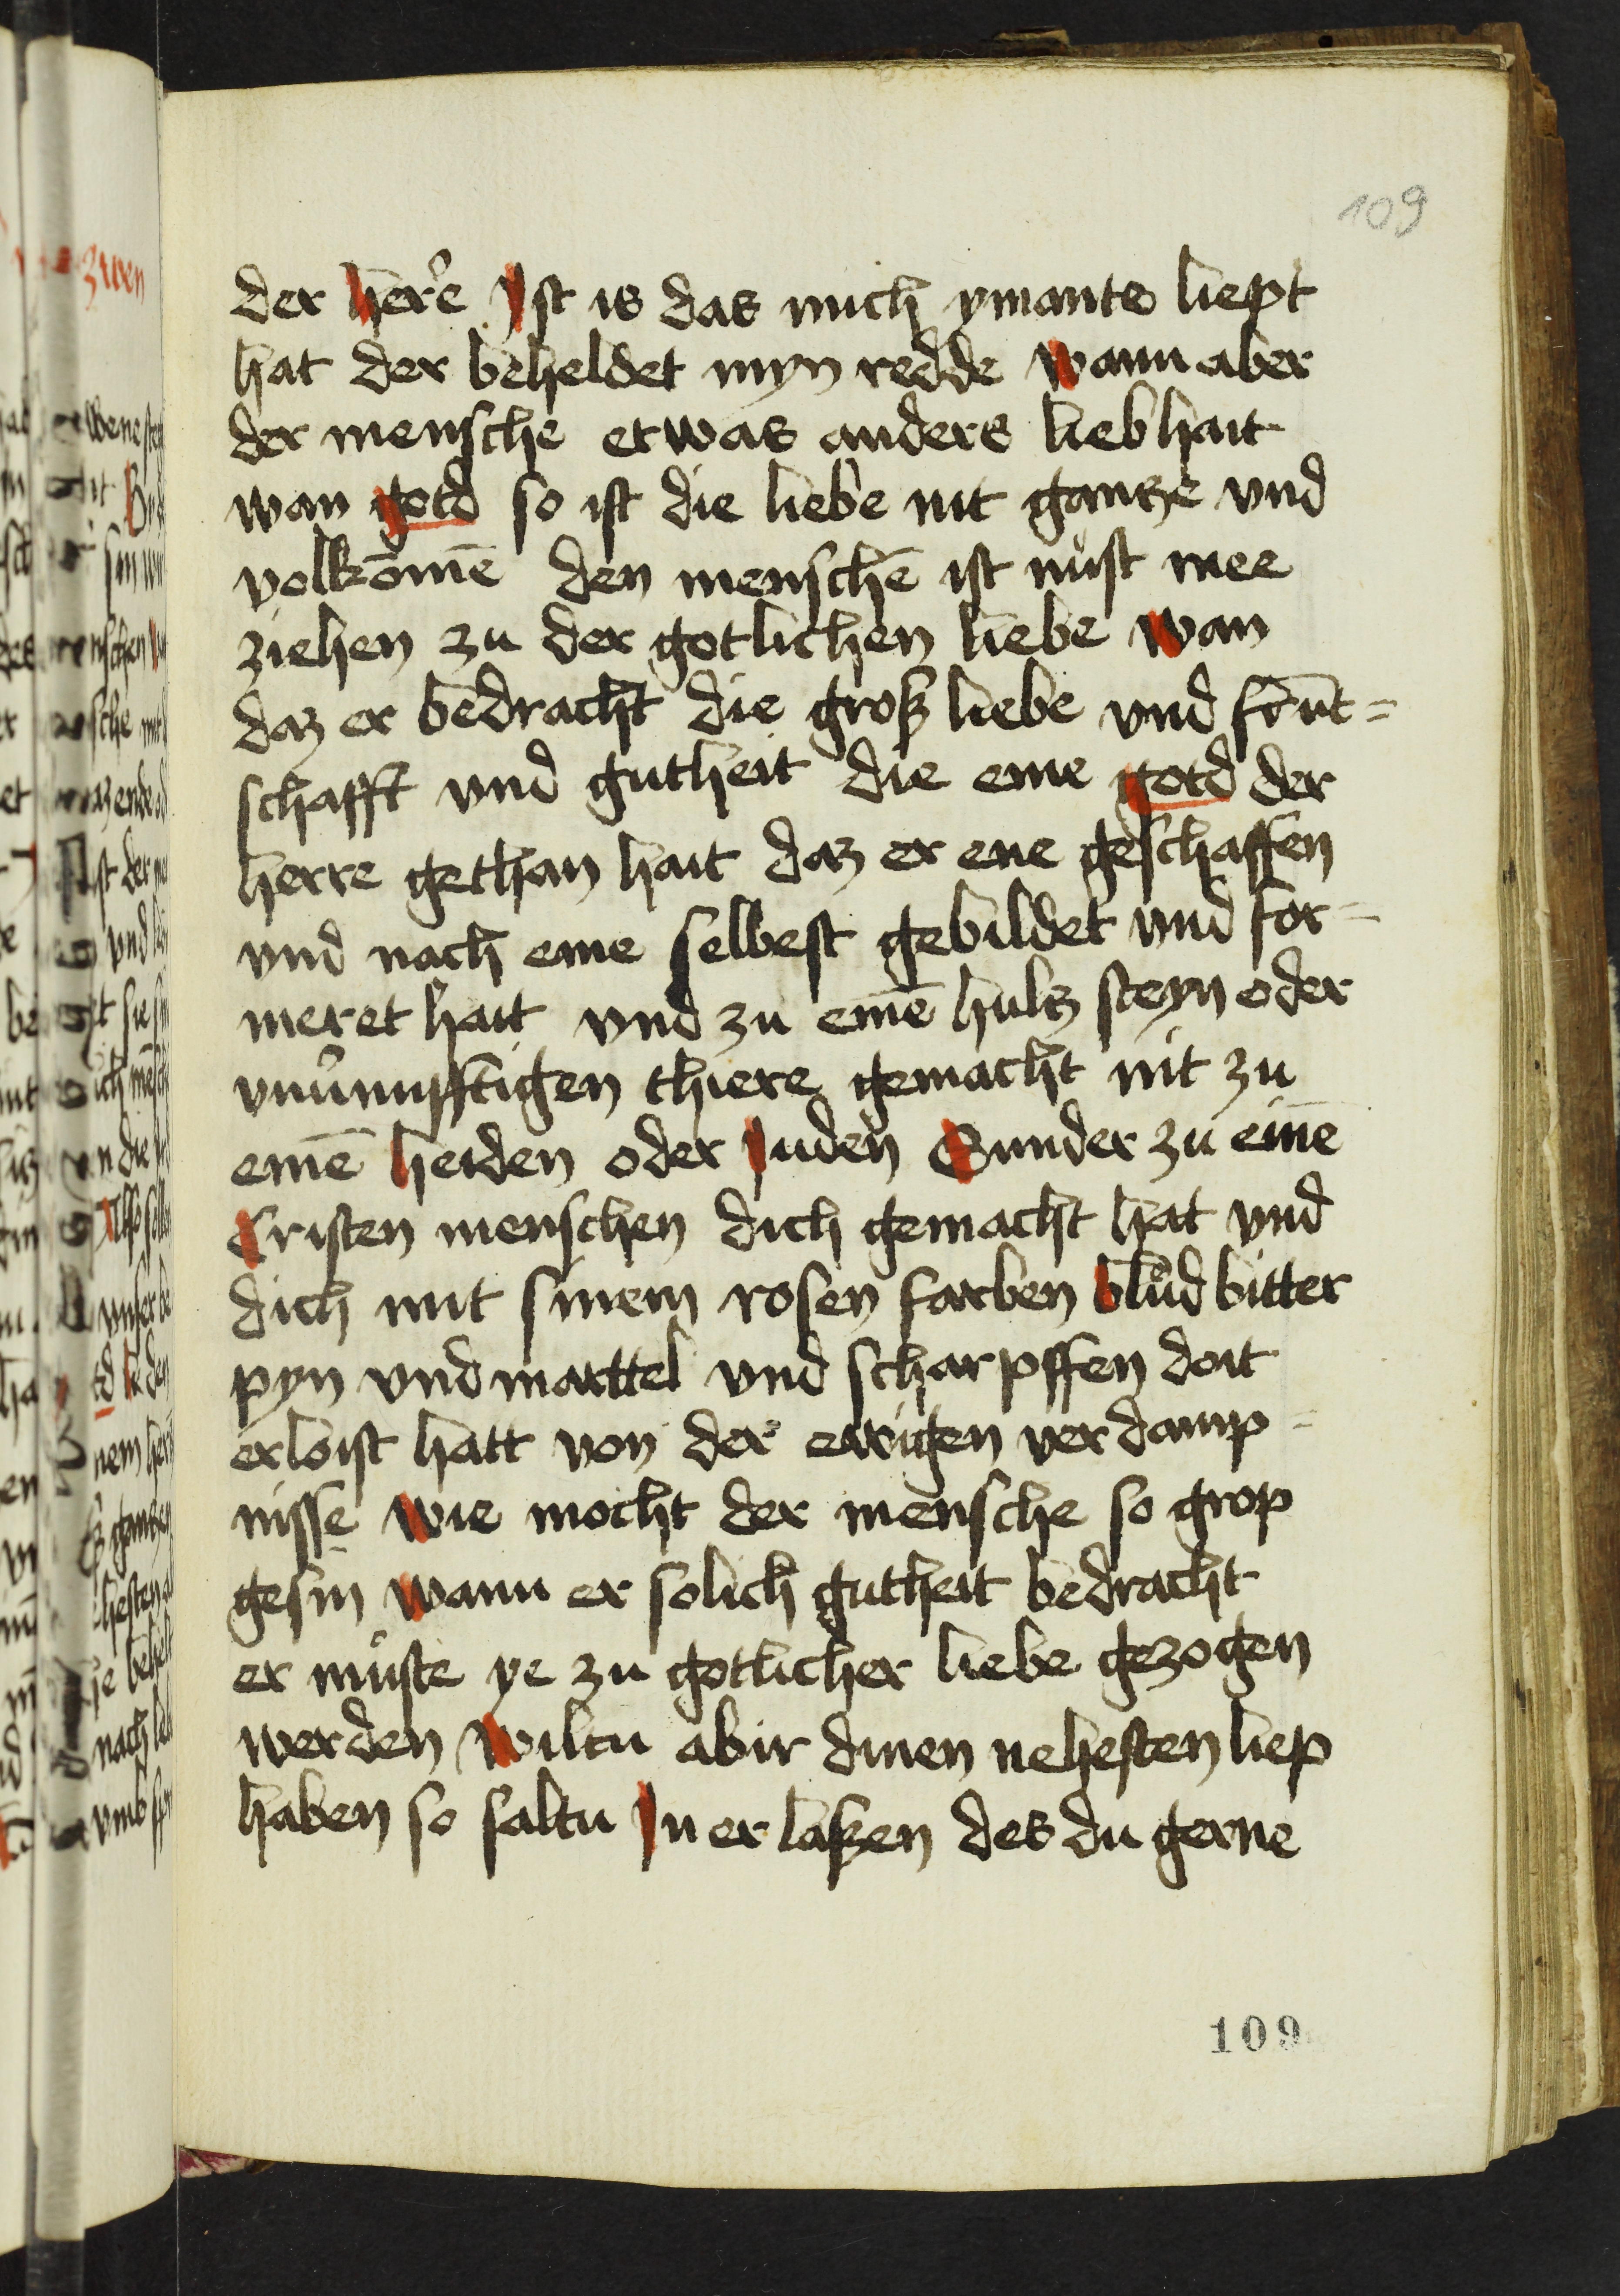 109
der here Ist is das mich ymants liept
hat der beheldet myn redde Wann aber
der mensche etwas anders lieb hait
wan gotd so ist die liebe nit gantze vnd
volkōmē den menschē ist nust mee
ziehen zu der gotlichen liebe Wan
daz er bedracht die groß liebe vnd frūt=
schafft vnd gutheit die eme gotd der
herre gethan hait daz er ene geschaffen
vnd nach eme selbest gebildet vnd for=
meret hait vnd zu emē hultz steyn oder
vnūnupfftigen thiere gemacht nit zu
emē heiden oder Juden Sunder zu einē
Cristen menschen dich gemacht hat vnd
dich mit sinem rosen farben blud bitter
pyn vnd mattel vnd scharpffen doit
erloist hatt von der ewigen verdamp=
nisse Wie mocht der mensche so grop
gesin Wann er solich gutheit bedracht
er muste ye zu gotlicher liebe gezogen
werden Wiltu abir dinen nehesten liep
haben so saltu In erlaßen des du gerne
109